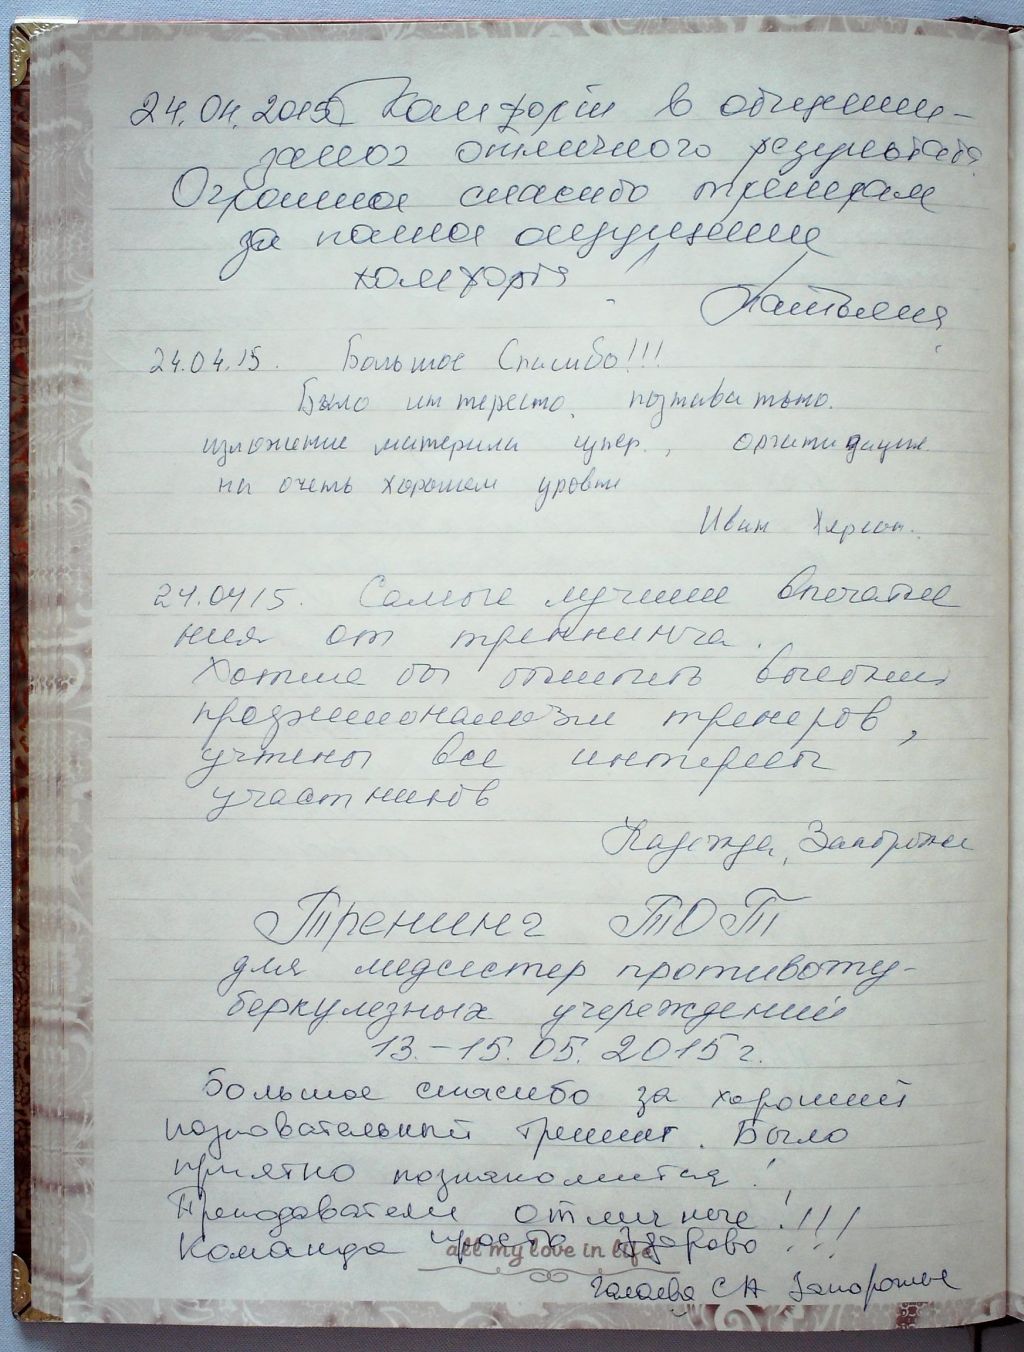 24.04.2015 Комфорт в общении -
залог отличного результата
Огромное спасибо тренерам
за полное ощущение
комфорта
Наталия
24.04.15. Большое Спасибо!!!
Было интересно, познавательно.
изложение материла супер., организация
на очень хорошем уровне
Иван Херсон.
24.0415. Самые лучшие впечатле
ния от треннинга.
Хотела бы отметить высокий
профессионализм тренеров,
учтены все интересы
участников
Надежда, Запорожье
Тренинг ТОТ
для медсестер противоту-
беркулезных учереждений
13.-15.05.2015г.
Большое спасибо за хороший
познавательный тренинг. Было
приятно познакомится!
Преподаватели отличные!!!!
Команда просто здорово!!!
all my love in life
СА Запорожье